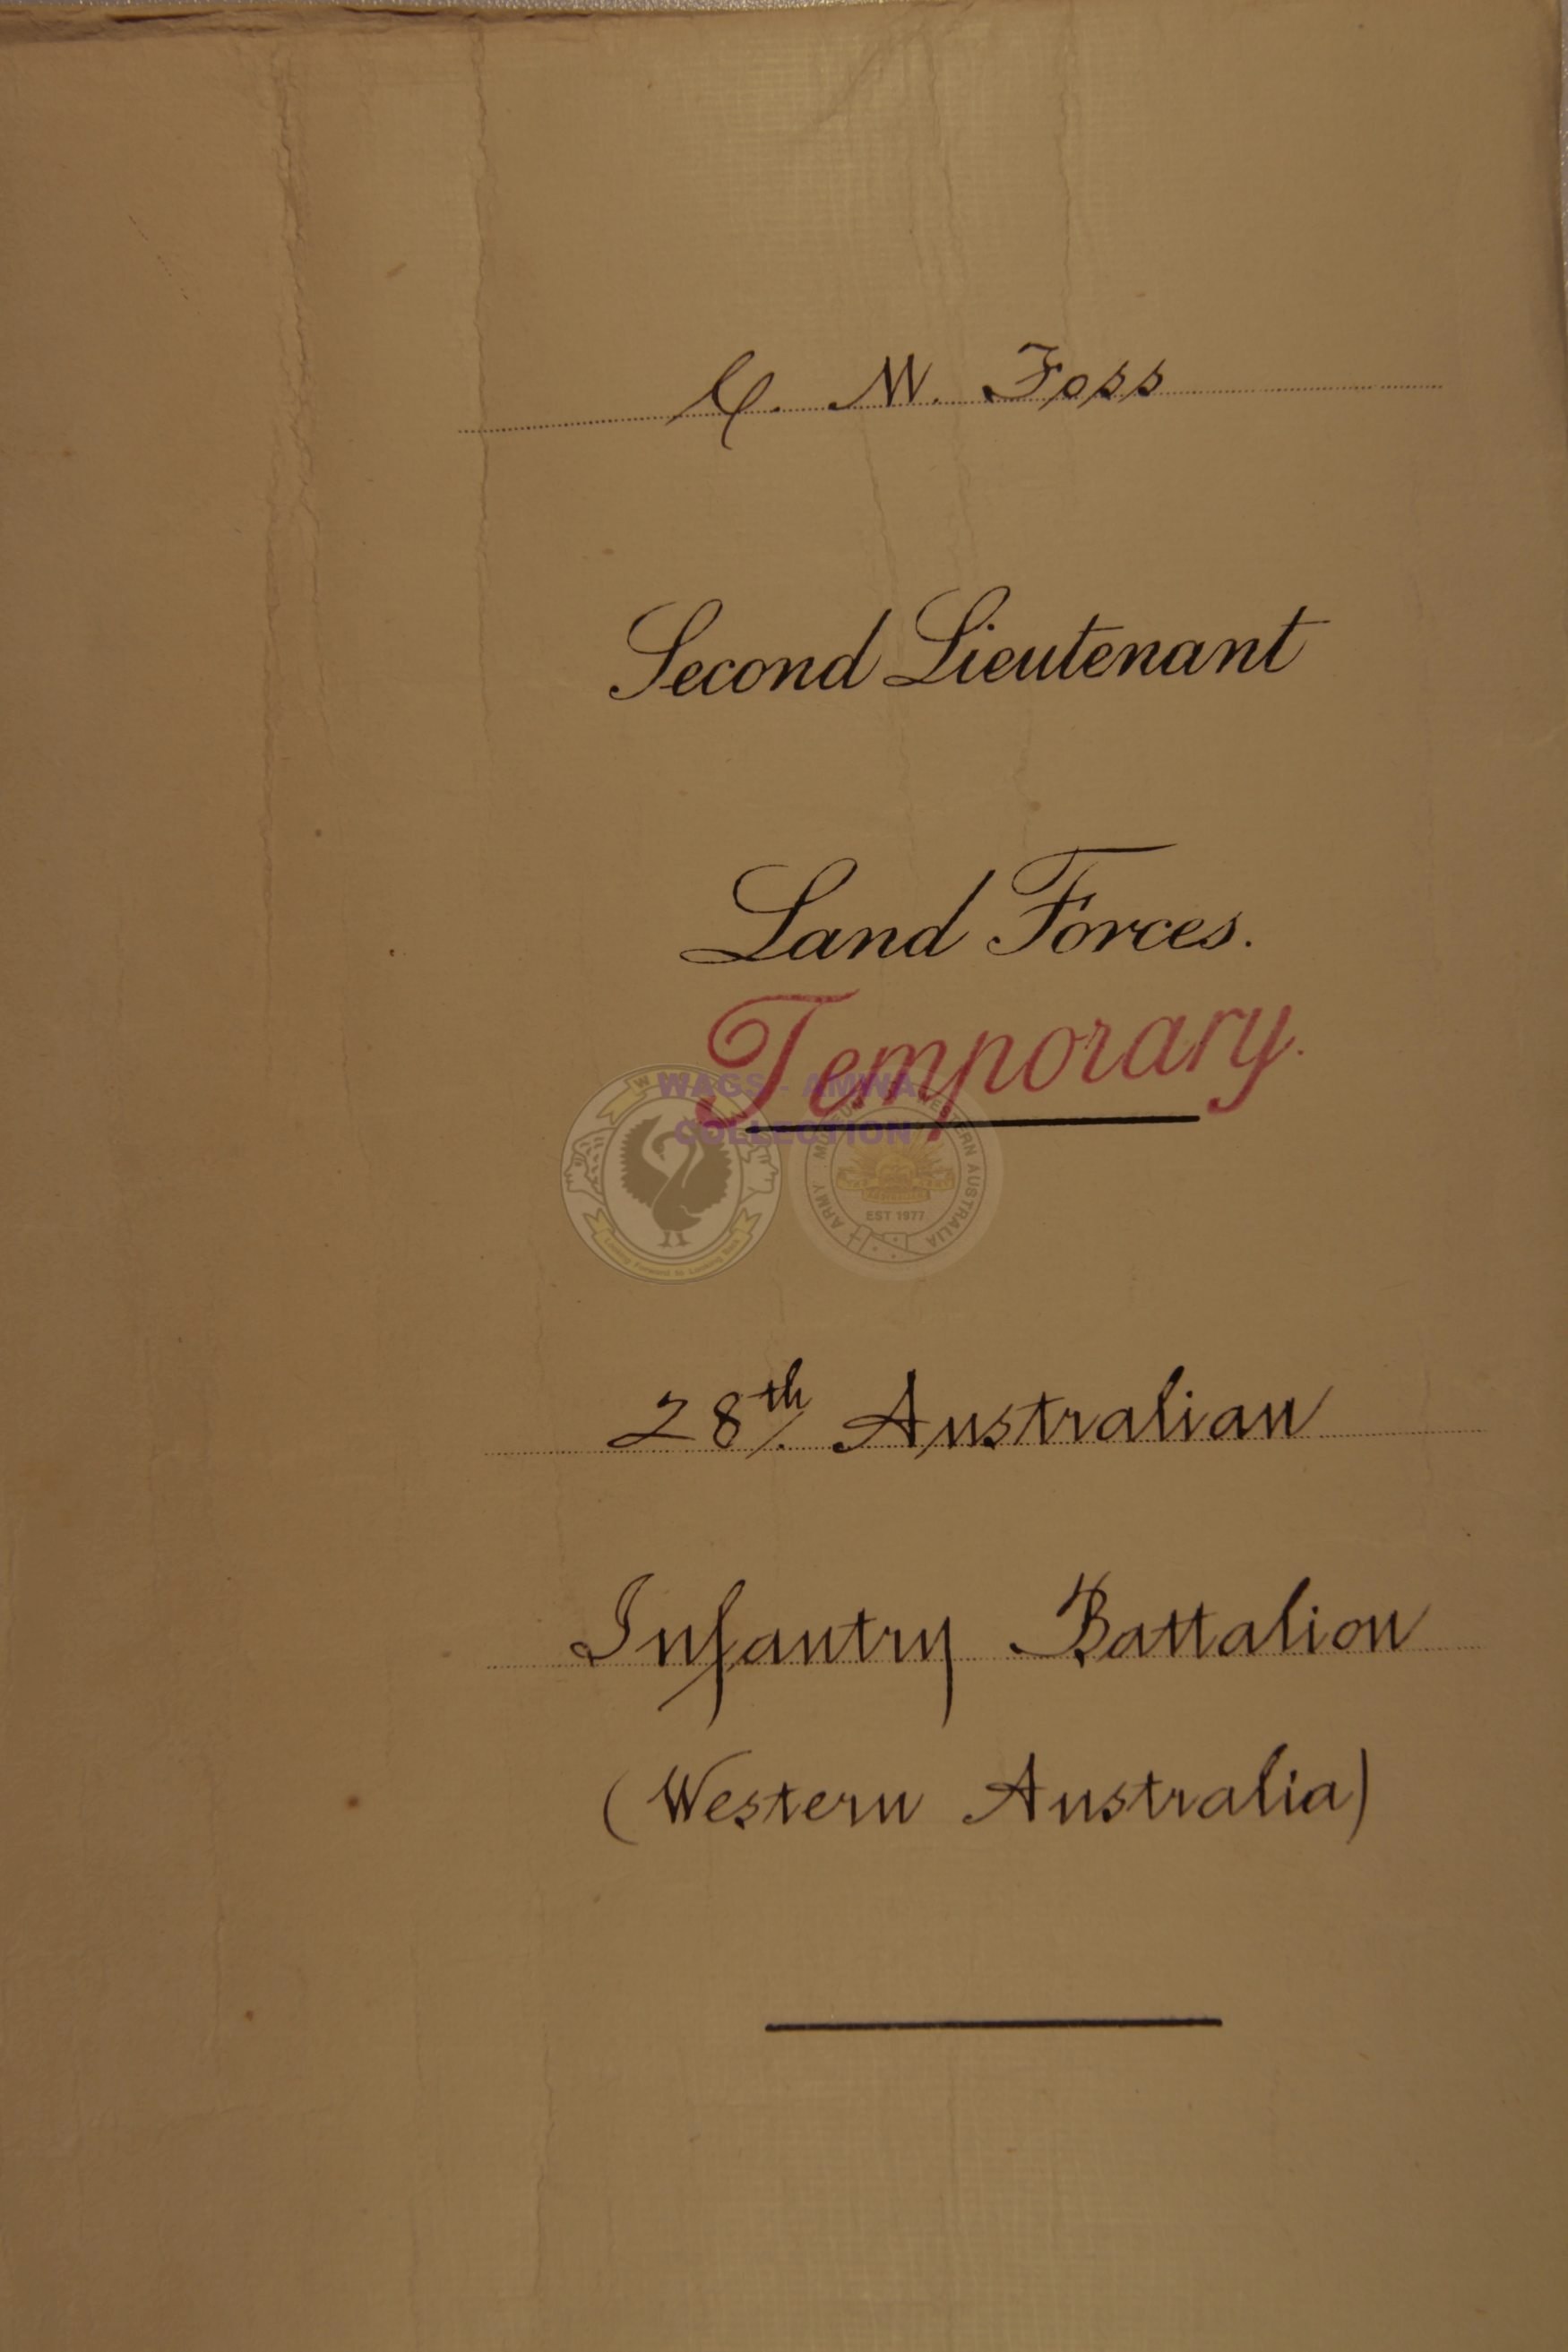 C. M. Foss
Second Lieutenant
Land Forces.
Temporary.
WAGS - AMWA
COLLECTION
ARMY MUSEUM WESTERN AUSTRALIA
EST 1977
Looking Forward to Looking Back
28th Australian
Infantry Battalion
(Western Australia)